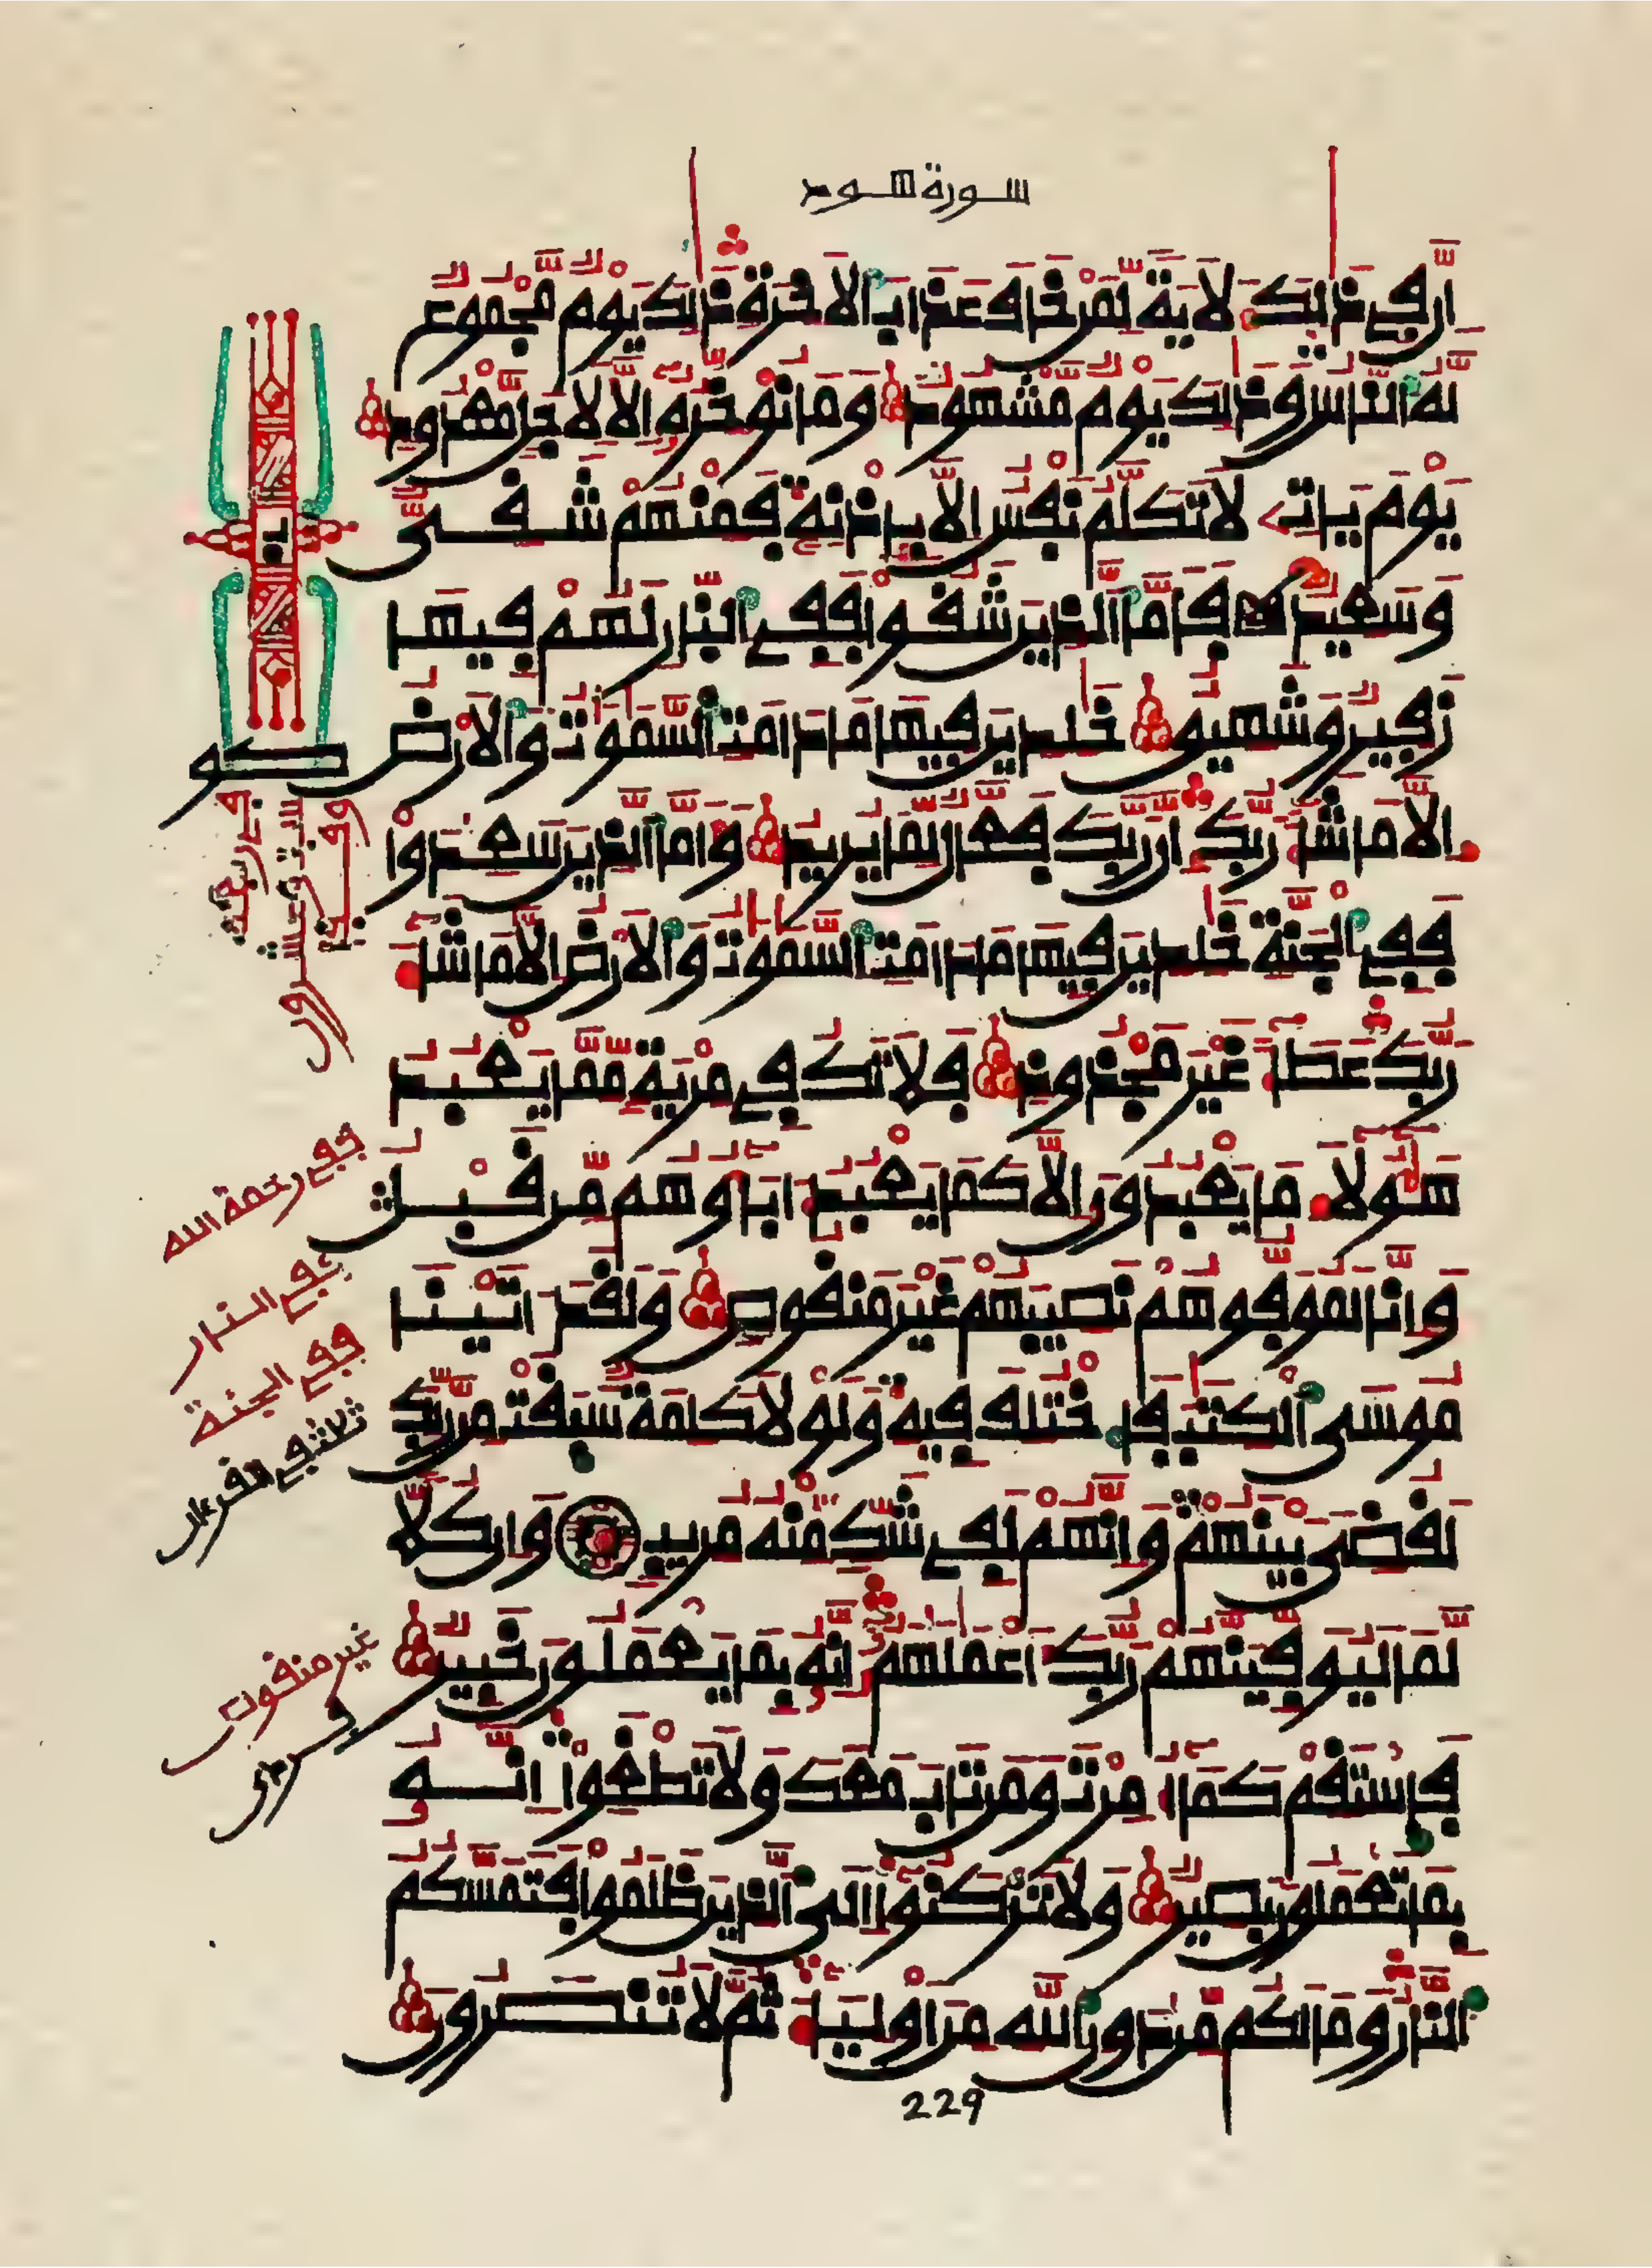 سورة هود
إن في ذلك لآية لمن خاف عذاب الاخرة ذلك يوم مجموع
له الناس وذلك يوم مشهود وما نوخره إلا لأجل معدود
يوم يأت لا تكلم نفس إلا بإذنه فمنهم شقي
وسعيد فأما الذين شقوا ففي النار لهم فيها
زفير وشهيق خلدين فيها ما دامت السموت والأرض
إلا ما شاء ربك إن ربك فعال لما يريد وأما الذين سعدوا
ففي الجنة خلدين فيها ما دامت السموت والأرض إلا ما شاء
ربك عطاء غير مجذوذ فلا تك في مرية مما يعبد
هولاء ما يعبدون إلا كما يعبد اباوهم من قبل
وإنا لموفوهم نصيبهم غير منقوص ولقد اتينا
موسى الكتب فاختلف فيه ولولا كلمة سبقت من ربك
لقضي بينهم وإنهم لفي شك منه مريب وإن كلا
لما ليوفينهم ربك أعملهم إنه بما يعملون خبير
فاستقم كما أمرت ومن تاب معك ولا تطغوا إنه
بما تعملون بصير ولا تركنوا إلى الذين ظلموا فتمسكم
النار وما لكم من دون الله من أولياء ثم لا تنصرون
229
ففي رحمة الله
ففي النار
ففي الجنة
ثلاث في القرءان
غير منقوص